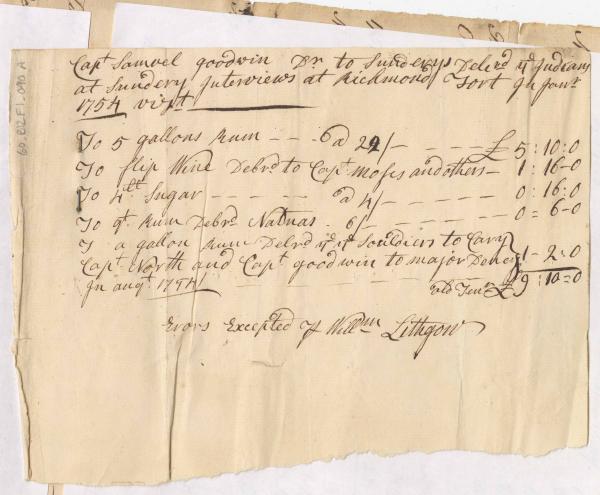 Capt Samuel goodwin Dr to Sunderys Delrd ye Indians
at Sundery Interviews at Richmond Fort In Janr
1754 vizt
To 5 gallons Rum - - - a 22/- - - - - £ 5:10:0
To flip Wine Delrd to Capt Moses and others - 1:16-0
To 4lt Sugar - - - - - - a 4/- - - - - 0:16:0
To qt Rum Delrd Natuas 6/ - - - - - 0=6-0
To a gallon Rum Delrd ye Souldiers to Cary
Capt North and Capt goodwin to major Deney } 1-2=0
In augt 1754 - - - - - - old Tenr £ 9:10=0
Erors Excepted Willm Lithgow
60.E12.F1.090 A